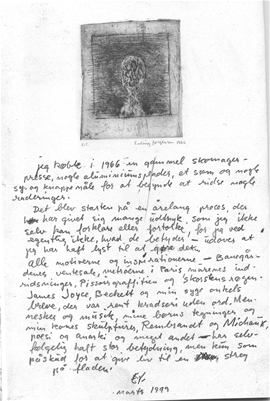 jeg købte i 1966 en gammel skomager-
presse, nogle aluminiumsplader, et som og nogle
sy- og knappenåle for at begynde at ridse nogle
raderinger.
Det blev starten på en årelang proces, der
har givet sig mange udtryk, som jeg ikke
selv kan forklare eller fortolke, for jeg ved
egentlig ikke, hvad de betyder - udover at
jeg har haft lyst til at gøre det.
Alle motiverne og inspirationerne - Banegår-
denes ventesale, metroerne i Paris murenes ind-
ridsninger, Pissoirgraffitien og skorstens røgen
James Joyce, Beckett og min syge onkels
breve, der var rent kradseri uden ord, Men-
nesker og musik, mine børns tegninger og
min kones skulpturer, Rembrandt og Michaux,
poesi og anarki og meget andet - har selv-
følgelig haft stor betydning, men kun som
påskud for at give liv til en streg
på fladen.
marts 1999